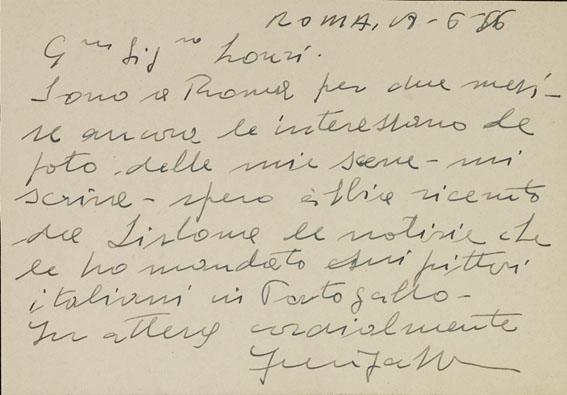 ROMA, 19-6-56
G.mo Sig.no
Sono a Roma per due mesi -
se ancora le interessano le
foto delle mie scene - mi
scriva - spero abbia ricevuto
da Lisbona le notizie che
le ho mandato sui pittori
italiani in Portogallo -
In attesa cordialmente